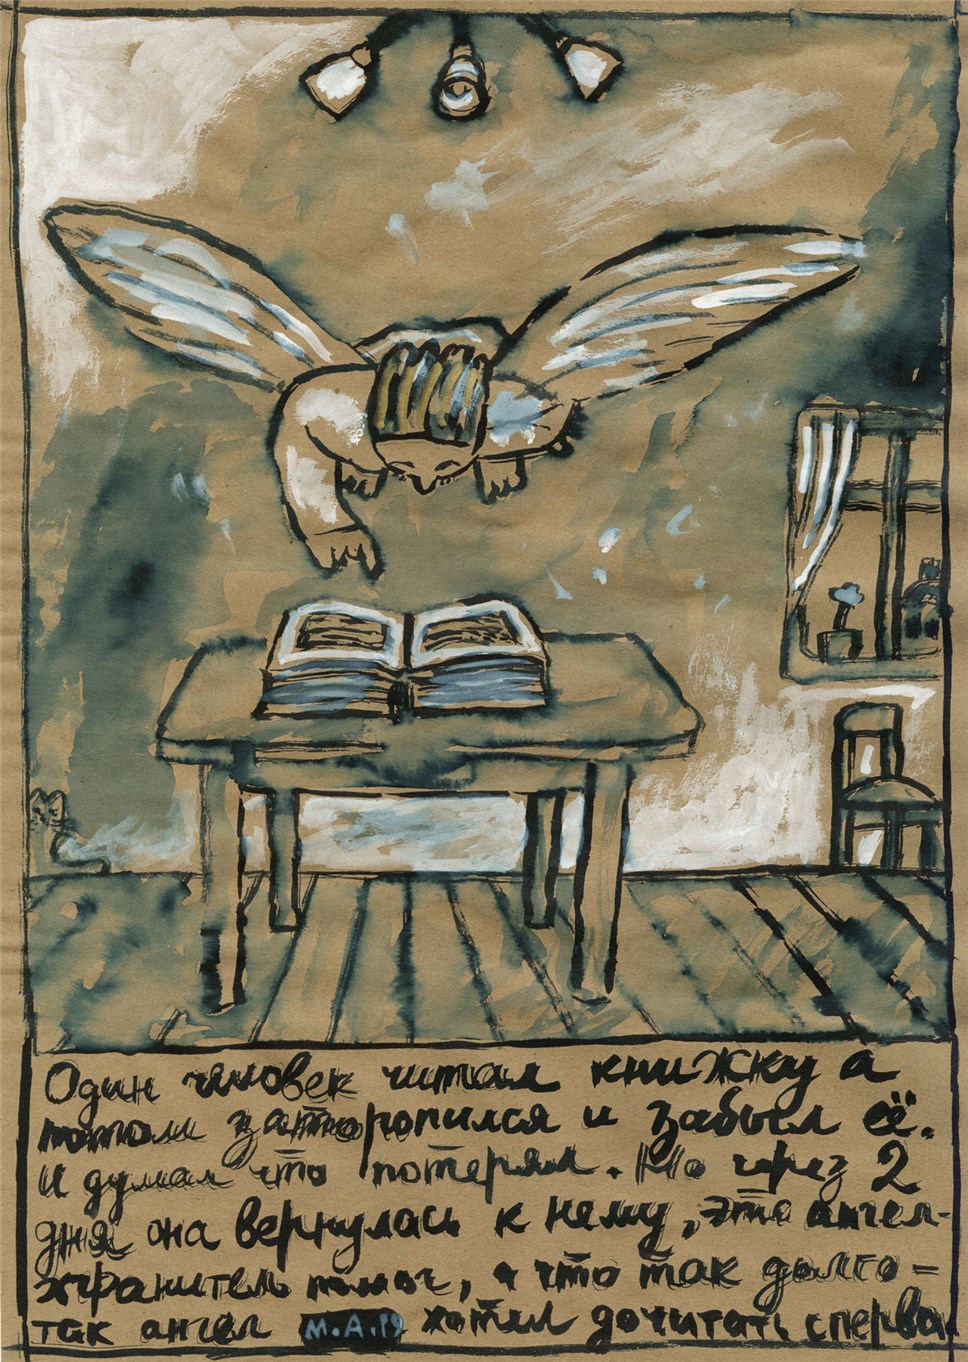 Один человек читал книжку а
потом заторопился и забыл её.
И думал что потерял. Но через 2
дня она вернулась к нему, это ангел-
хранитель помог, а что так долго -
так ангел М.А.19 хотел дочитать сперва